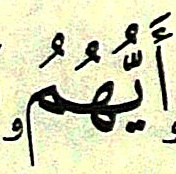 أَيُّهُمُ